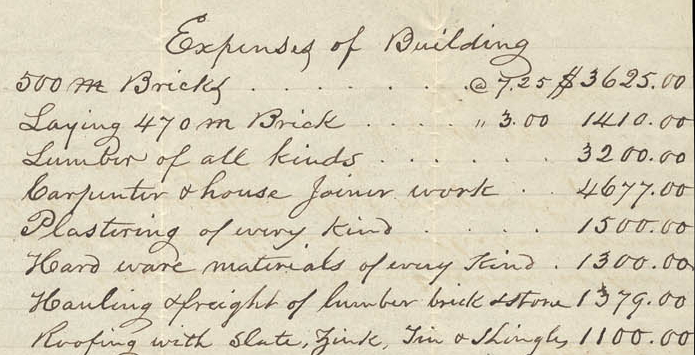 Expenses of Building
500 m Bricks . . . . . . . @ 7.25 $3625.00
Laying 470 m Brick . . . . " 3.00 1410.00
Lumber of all kinds . . . . . . 3200.00
Carpenter & house Joiner work . . 4677.00
Plastering of every kind . . . . 1500.00
Hard ware materials of every kind . 1300.00
Hauling & freight of lumber brick & stone 1379.00
Roofing with Slate, Zink, Tin & Shingles 1100.00